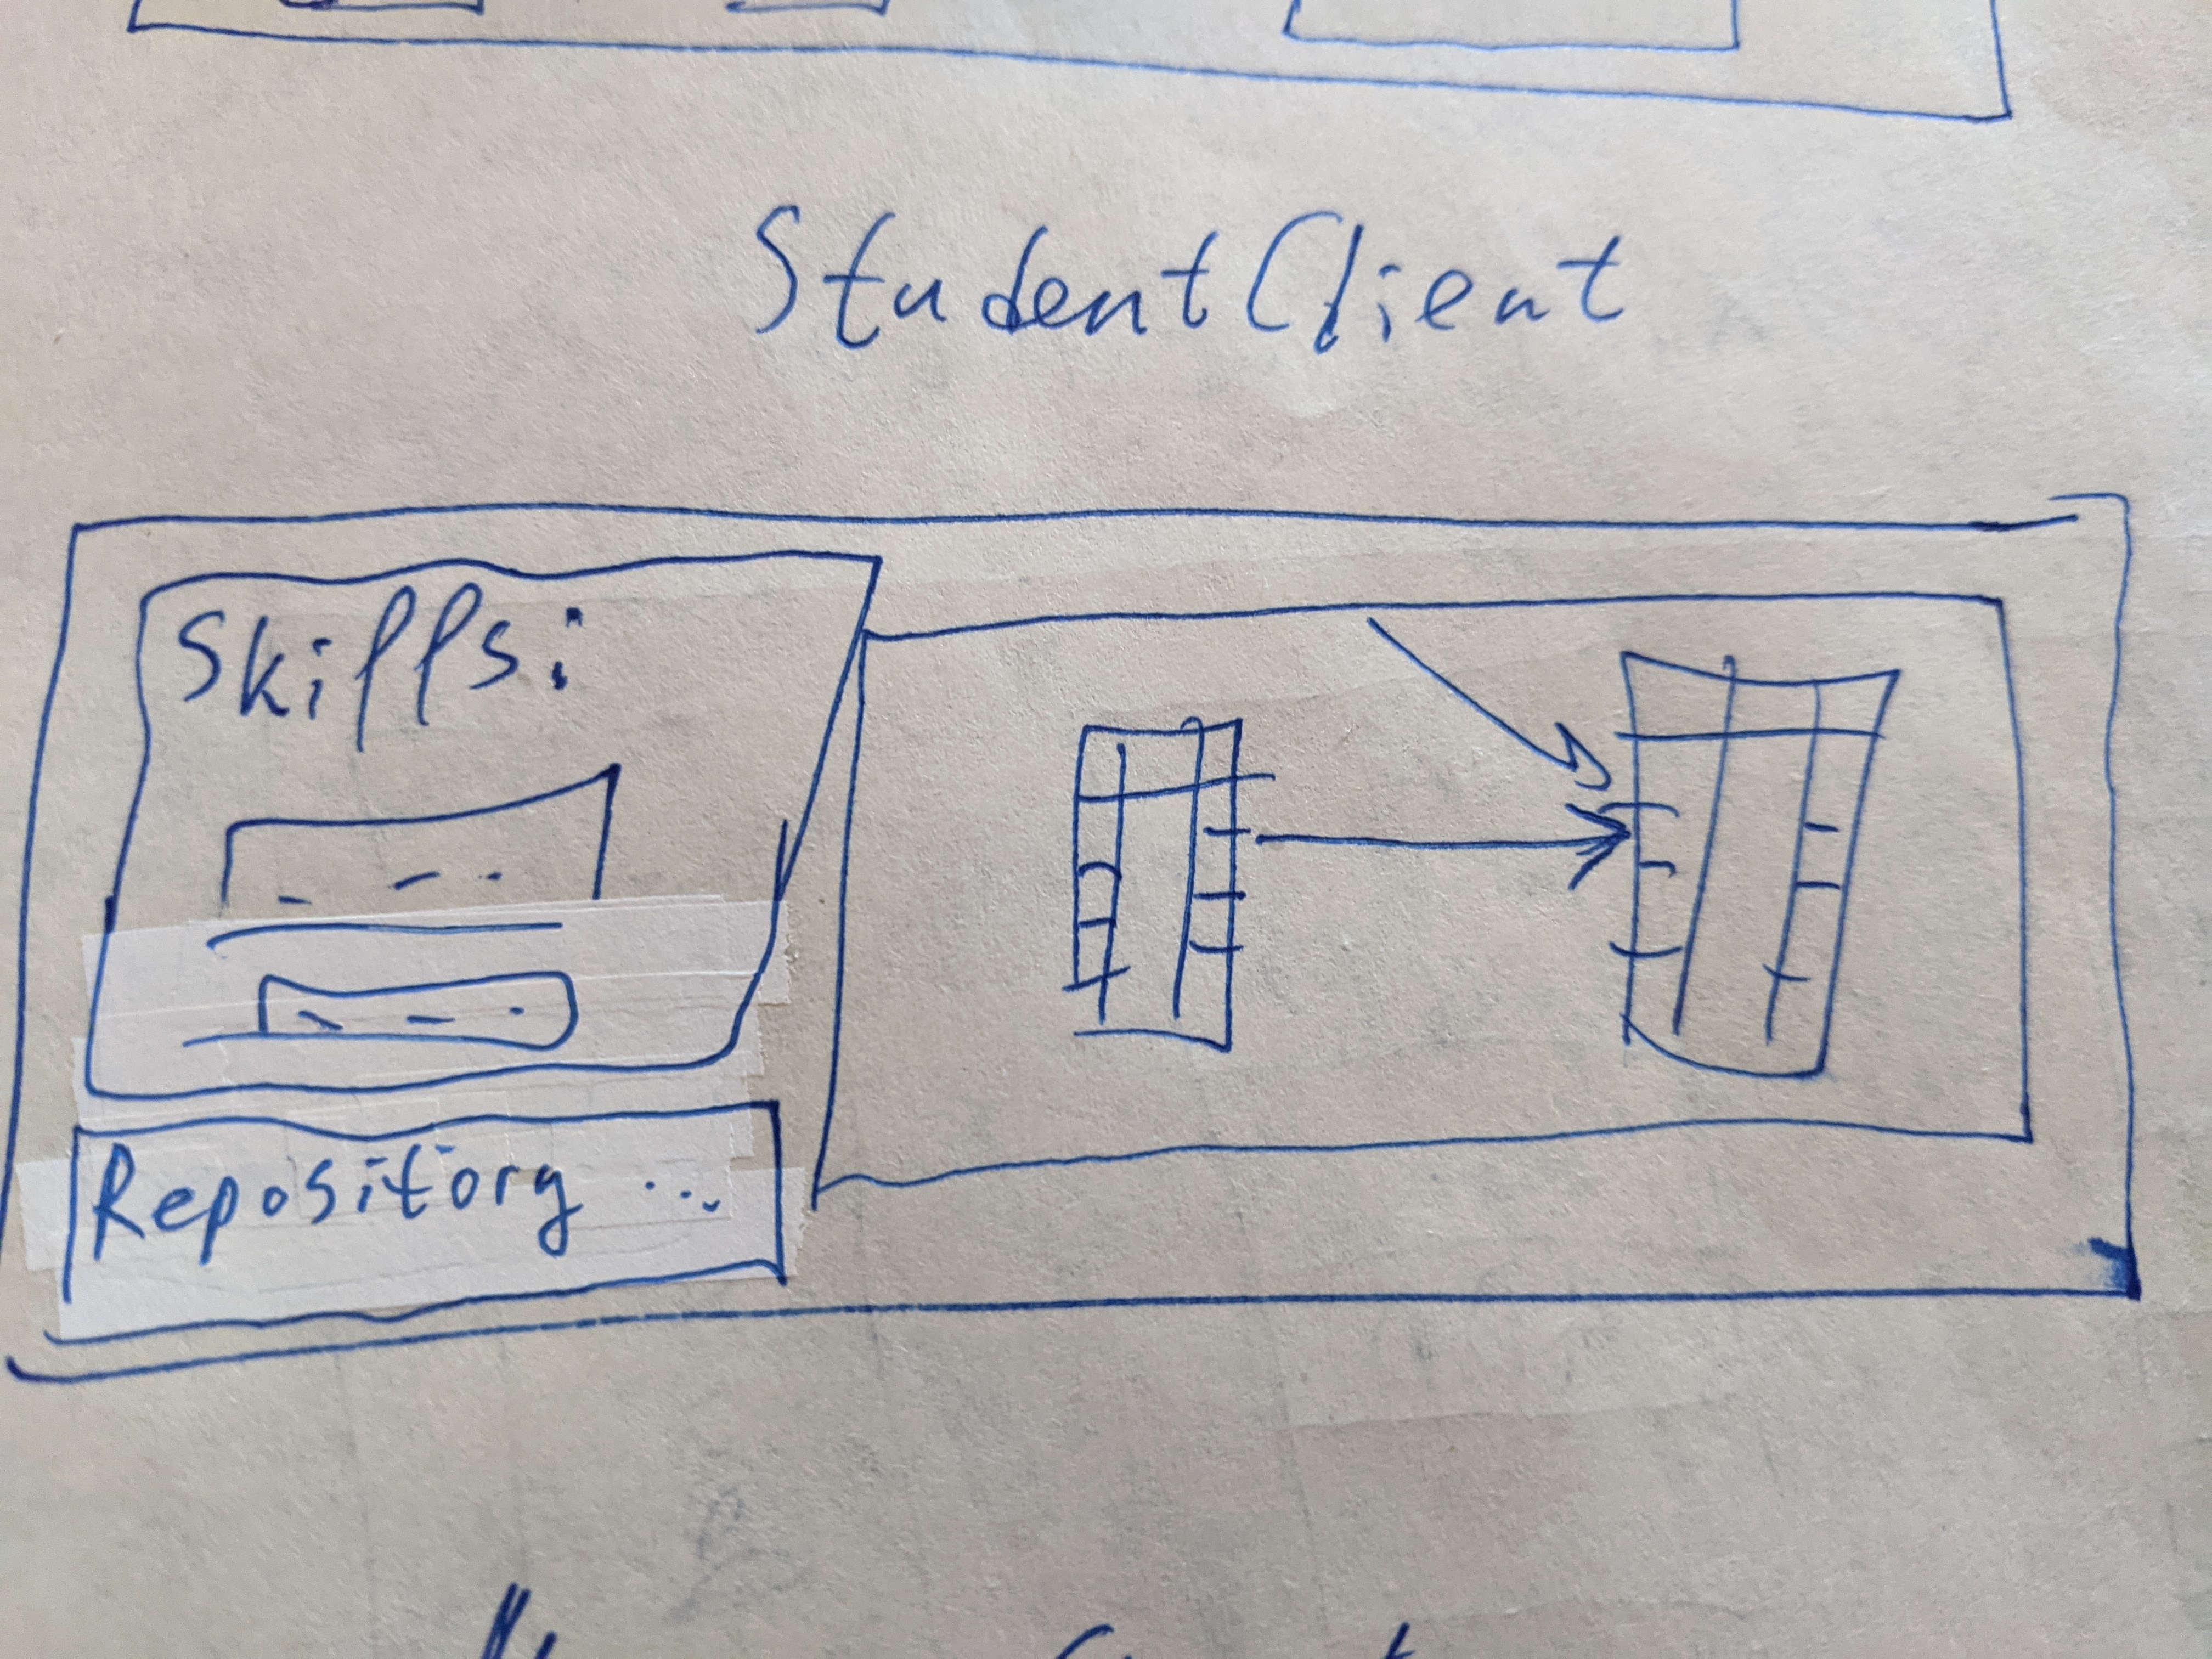 StudentClient
Skills:
Repository ...